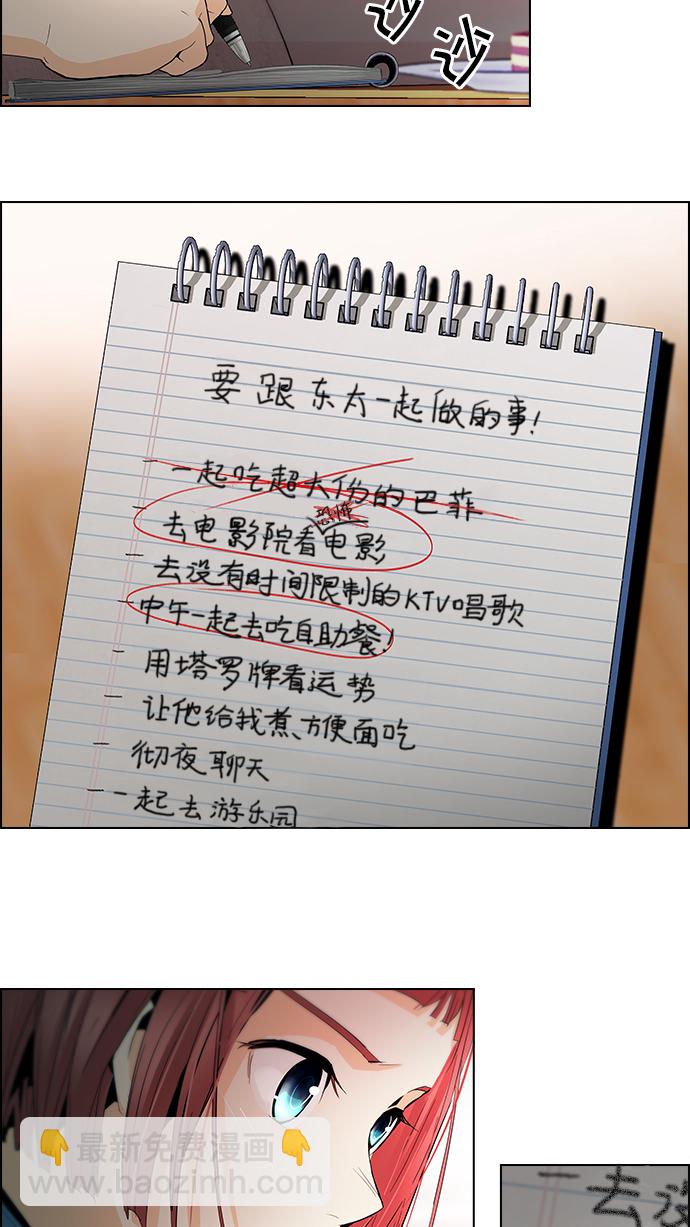 沙
沙
要跟东大一起做的事!
- 一起吃超大份的巴菲
恐怖
- 去电影院看电影
- 去没有时间限制的KTV唱歌
- 中午一起去吃自助餐!
- 用塔罗牌看运势
- 让他给我煮方便面吃
- 彻夜聊天
- 一起去游乐园
👇最新免费漫画👇
www.baozimh.com
一 去没